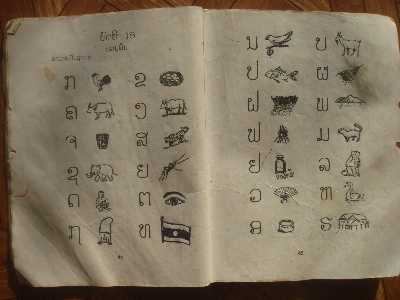 ບົດທີ 18
ກ ຂ
ຄ ງ
ຈ ສ
ຊ ຍ
ດ ຕ
ຖ ທ
ນ ບ
ປ ຜ
ຝ ພ
ຟ ມ
ຢ ລ
ວ ຫ
ອ ຮ